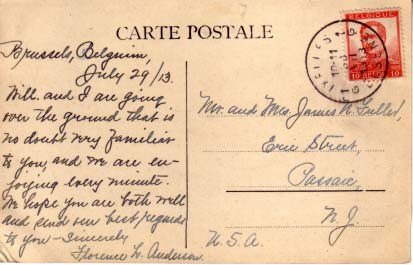 CARTE POSTALE
BELGIQUE
10 10
Brussels, Belgium,
July 29/13.
Will. and I are going
over the ground that is
no doubt very familiar
to you, and we are en-
joying every minute.
We hope you are both well
and send our best regards
to you - Sincerely
Florence W. Anderson.
Mr. and Mrs. James N.
Erie Street,
Passaic,
N.J.
U.S.A.